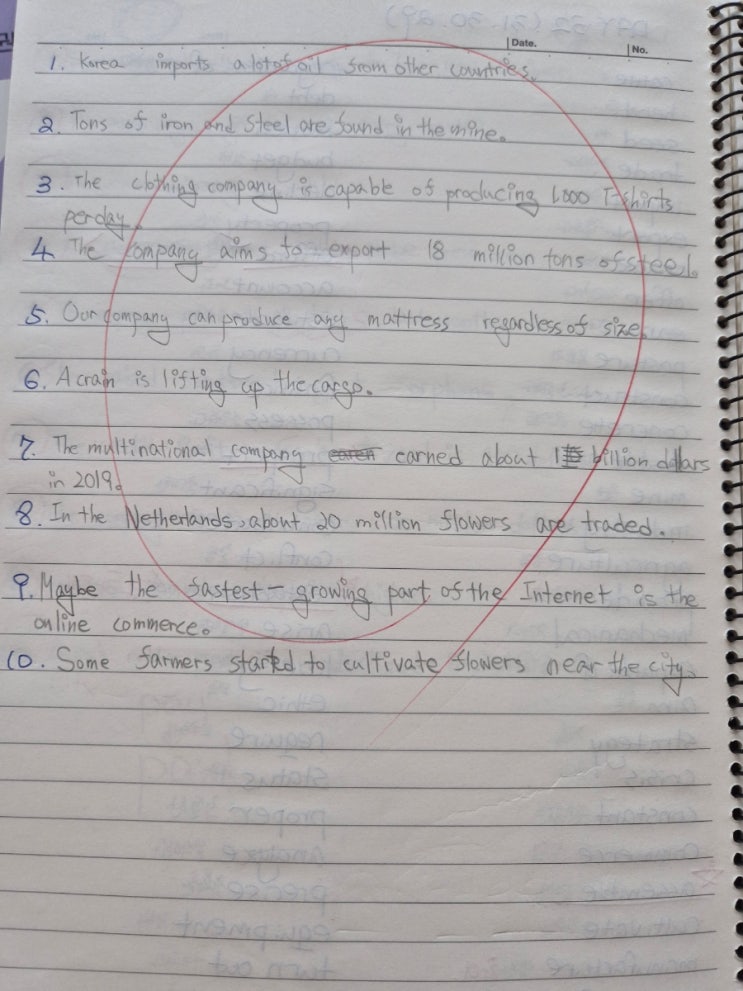 Date.
No.
1. Korea imports a lot of oil from other countries.
2. Tons of iron and steel are found in the mine.
3. The clothing company is capable of producing 1,000 T-shirts
per day.
4. The company aims to export 18 million tons of steel.
5. Our company can produce any mattress regardless of size.
6. A crain is lifting up the cargo.
7. The multinational company earned about billion dollars
in 2019.
8. In the Netherlands, about 20 million flowers are traded.
9. Maybe the fastest-growing part of the Internet is the
online commerce.
10. Some farmers started to cultivate flowers near the city.